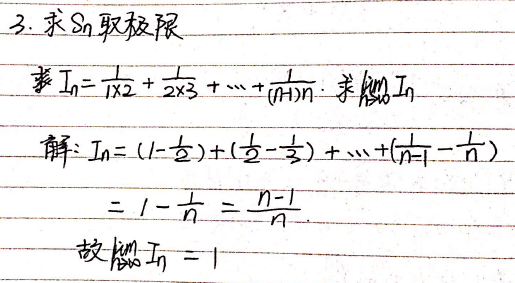 3. 求Sn取极限
求 In = 1/(1×2) + 1/(2×3) + ⋯ + 1/((n-1)n). 求 lim n→∞ In
解: In = (1 - 1/2) + (1/2 - 1/3) + ⋯ + (1/(n-1) - 1/n)
= 1 - 1/n = (n-1)/n.
故 lim n→∞ In = 1